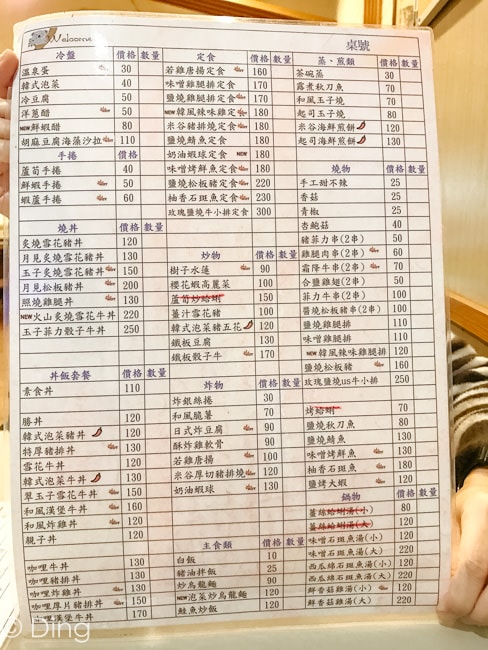 Welcome
桌號
冷盤 價格 數量
溫泉蛋 30
韓式泡菜 40
冷豆腐 50
洋蔥醋 50
NEW鮮蝦醋 80
胡麻豆腐海藻沙拉 110
手捲 價格
蘆筍手捲 40
鮮蝦手捲 50
蝦蘆手捲 60
燒丼 價格 數量
炙燒雪花豬丼 120
月見炙燒雪花豬丼 130
玉子炙燒雪花豬丼 150
月見松板豬丼 200
照燒雞腿丼 130
NEW火山炙燒雪花牛丼 220
玉子菲力骰子牛丼 250
丼飯套餐 價格 數量
素食丼 110
勝丼 120
韓式泡菜豬丼 120
特厚豬排丼 130
雪花牛丼 120
韓式泡菜牛丼 130
翠玉子雪花牛丼 150
和風漢堡牛丼 160
和風炸雞丼 120
親子丼 120
咖哩牛丼 130
咖哩豬排丼 130
咖哩炸雞丼 130
咖哩厚片豬排丼 150
咖哩漢堡牛丼 170
定食 價格 數量
若雞唐揚定食 160
味噌雞腿排定食 170
鹽燒雞腿排定食 170
NEW韓風辣味雞定食 180
米谷豬排燒定食 180
鹽燒鯖魚定食 180
奶油蝦球定食 NEW 180
味噌烤鮮魚定食 180
鹽燒松板豬定食 220
柚香石斑魚定食 230
玫瑰鹽燒牛小排定食 300
炒物 價格 數量
樹子水蓮 90
櫻花蝦高麗菜 100
蘆筍炒蛤蜊 150
薑汁雪花豬 100
韓式泡菜豬五花 120
鐵板豆腐 130
鐵板骰子牛 170
炸物 價格 數量
炸銀絲捲 30
和風脆薯 70
日式炸豆腐 90
酥炸雞軟骨 90
若雞唐揚 100
米谷厚切豬排燒 120
奶油蝦球 130
主食類 價格 數量
白飯 10
豬油拌飯 25
炒烏龍麵 90
NEW泡菜炒烏龍麵 120
鮭魚炒飯 120
蒸、煎類 價格 數量
茶碗蒸 30
露煮秋刀魚 70
和風玉子燒 70
起司玉子燒 80
米谷海鮮煎餅 120
起司海鮮煎餅 130
燒物 價格 數量
手工甜不辣 25
香菇 25
青椒 25
杏鮑菇 40
豬菲力串(2串) 50
雞腿肉串(2串) 60
霜降牛串(2串) 70
合鹽雞翅(2串) 50
菲力牛串(2串) 100
醬燒松板豬串(2串) 100
鹽燒雞腿排 110
味噌雞腿排 110
NEW韓風辣味雞腿排 120
鹽燒松板豬 160
玫瑰鹽燒us牛小排 250
烤蛤蜊 70
鹽燒秋刀魚 80
鹽燒鯖魚 130
味噌烤鮮魚 130
柚香石斑魚 180
鹽烤大蝦 120
鍋物 價格 數量
薑絲蛤蜊湯(小) 80
薑絲蛤蜊湯(大) 120
味噌石斑魚湯(小) 120
味噌石斑魚湯(大) 220
西瓜綿石斑魚湯(小) 120
西瓜綿石斑魚湯(大) 220
鮮香菇雞湯(小) 120
鮮香菇雞湯(大) 220
© Ding